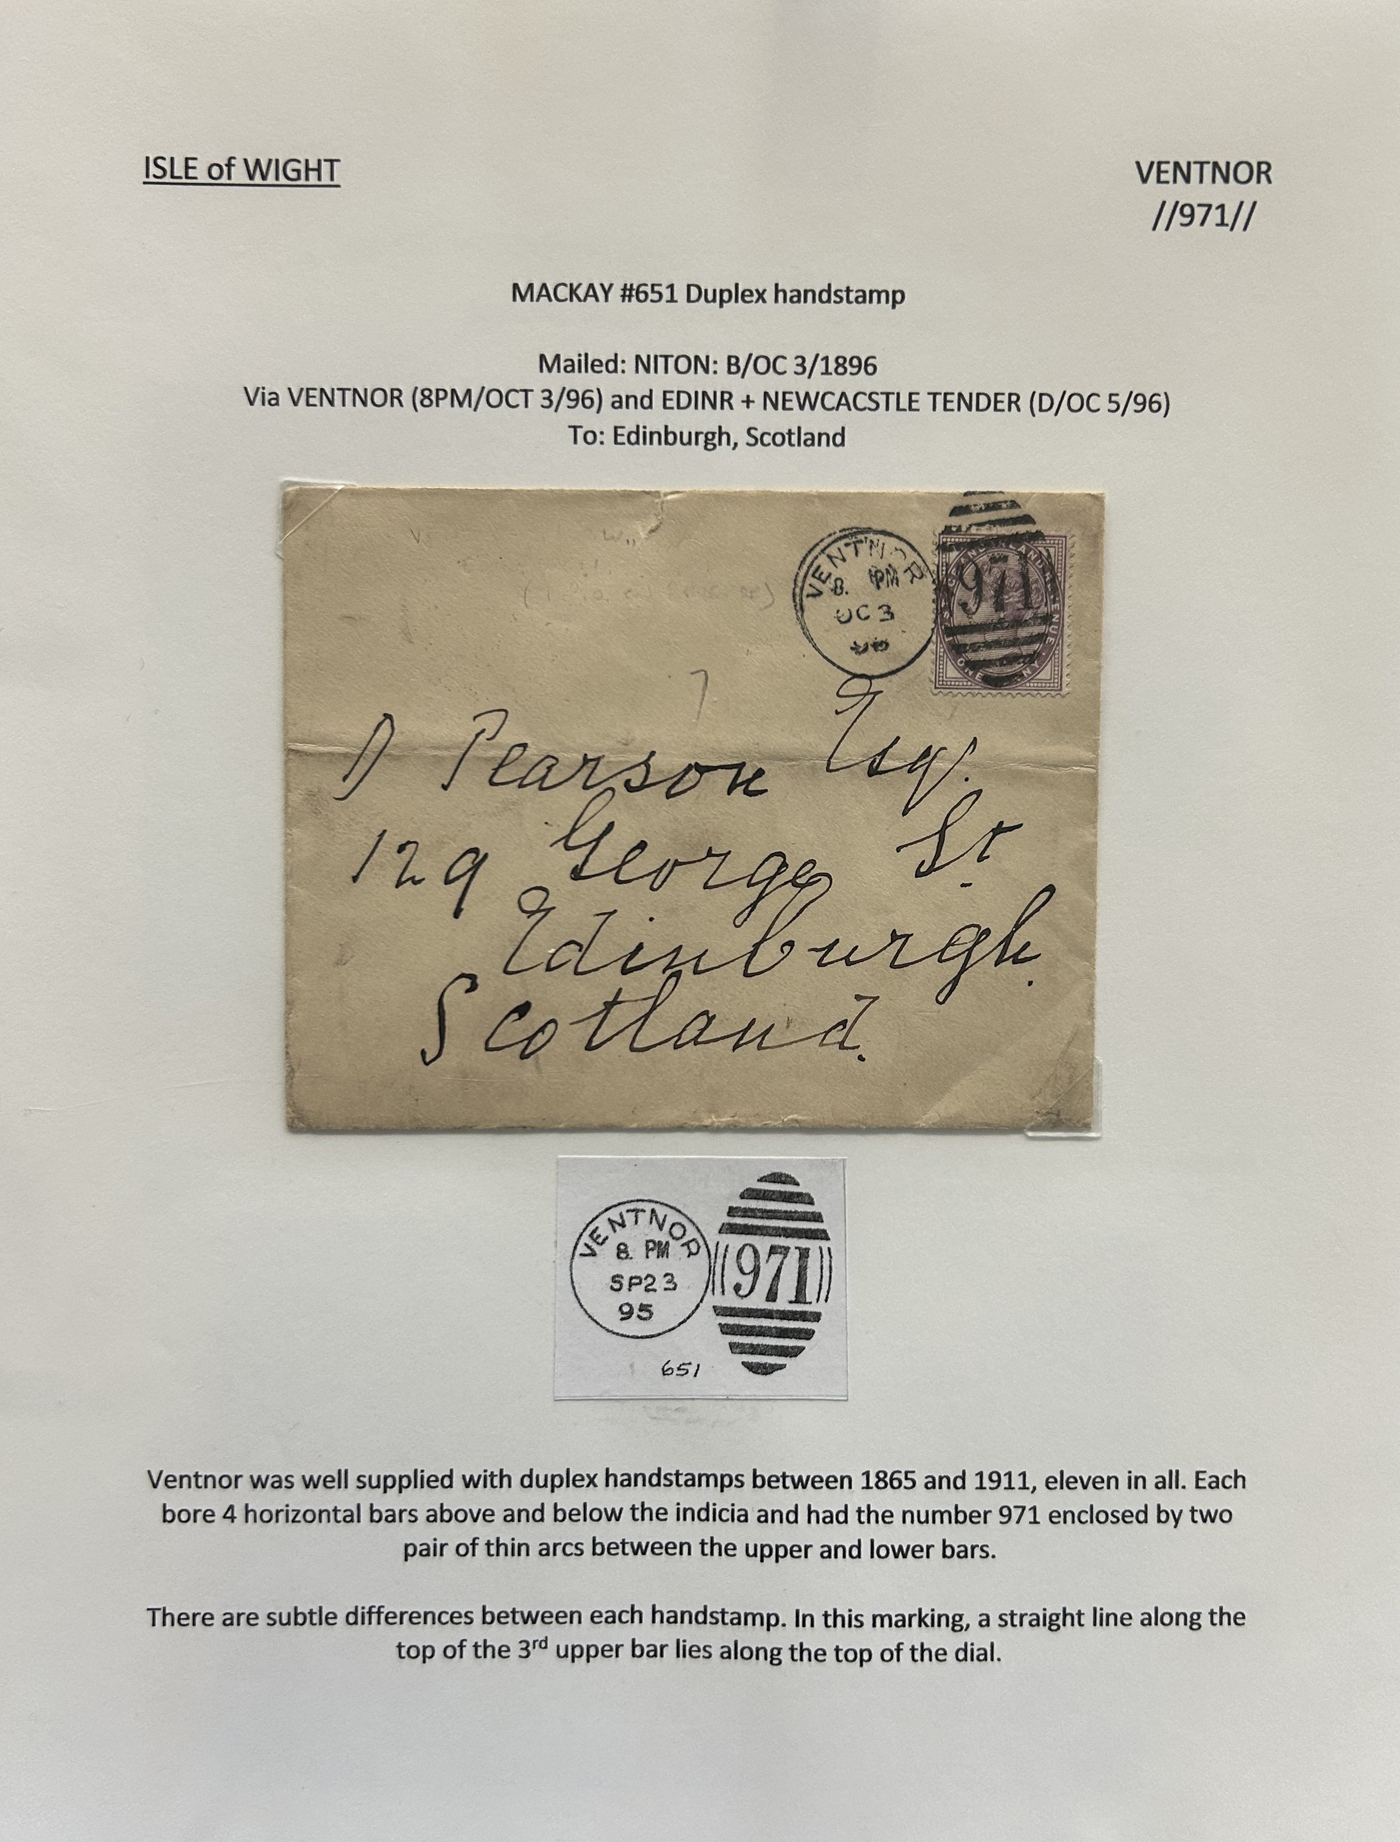 ISLE of WIGHT
VENTNOR
//971//
MACKAY #651 Duplex handstamp
Mailed: NITON: B/OC 3/1896
Via VENTNOR (8PM/OCT 3/96) and EDINR + NEWCACSTLE TENDER (D/OC 5/96)
To: Edinburgh, Scotland
VENTNOR
8. PM
OC 3
971
D Pearson Esq.
129 George St
Edinburgh.
Scotland.
VENTNOR
8. PM
SP23
95
971
651
Ventnor was well supplied with duplex handstamps between 1865 and 1911, eleven in all. Each
bore 4 horizontal bars above and below the indicia and had the number 971 enclosed by two
pair of thin arcs between the upper and lower bars.
There are subtle differences between each handstamp. In this marking, a straight line along the
top of the 3rd upper bar lies along the top of the dial.